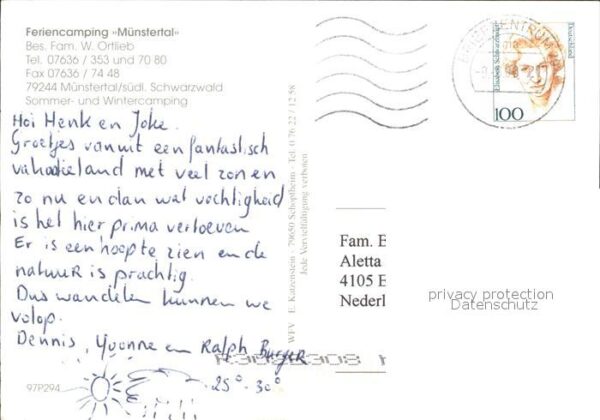 Feriencamping »Münstertal«
Bes. Fam. W. Ortlieb
Tel. 07636 / 353 und 70 80
Fax 07636 / 74 48
79244 Münstertal/südl. Schwarzwald
Sommer- und Wintercamping
Hoi Henk en Joke.
Groetjes vanuit een fantastisch
vakantieland met veel zon en
zo nu en dan wat vochtigheid
is het hier prima vertoeven
Er is een hoopte zien en de
natuur is prachtig.
Dus wandelen kunnen we
volop.
Dennis, Yvonne en Ralph Burger
25° - 30°
97P294
WFV E. Katzenstein · 79650 Schopfheim · Tel. 0 76 22 / 12 58
Jede Vervielfältigung verboten
BRIEFZENTRUM
Elisabeth Schwarzhaupt
Deutschland
100
Fam. E
Aletta
4105 E
Nederl
privacy protection
Datenschutz